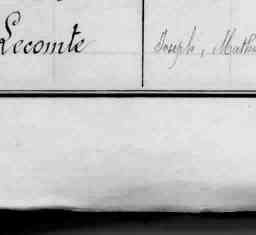 Lecomte
Joseph, Mathu